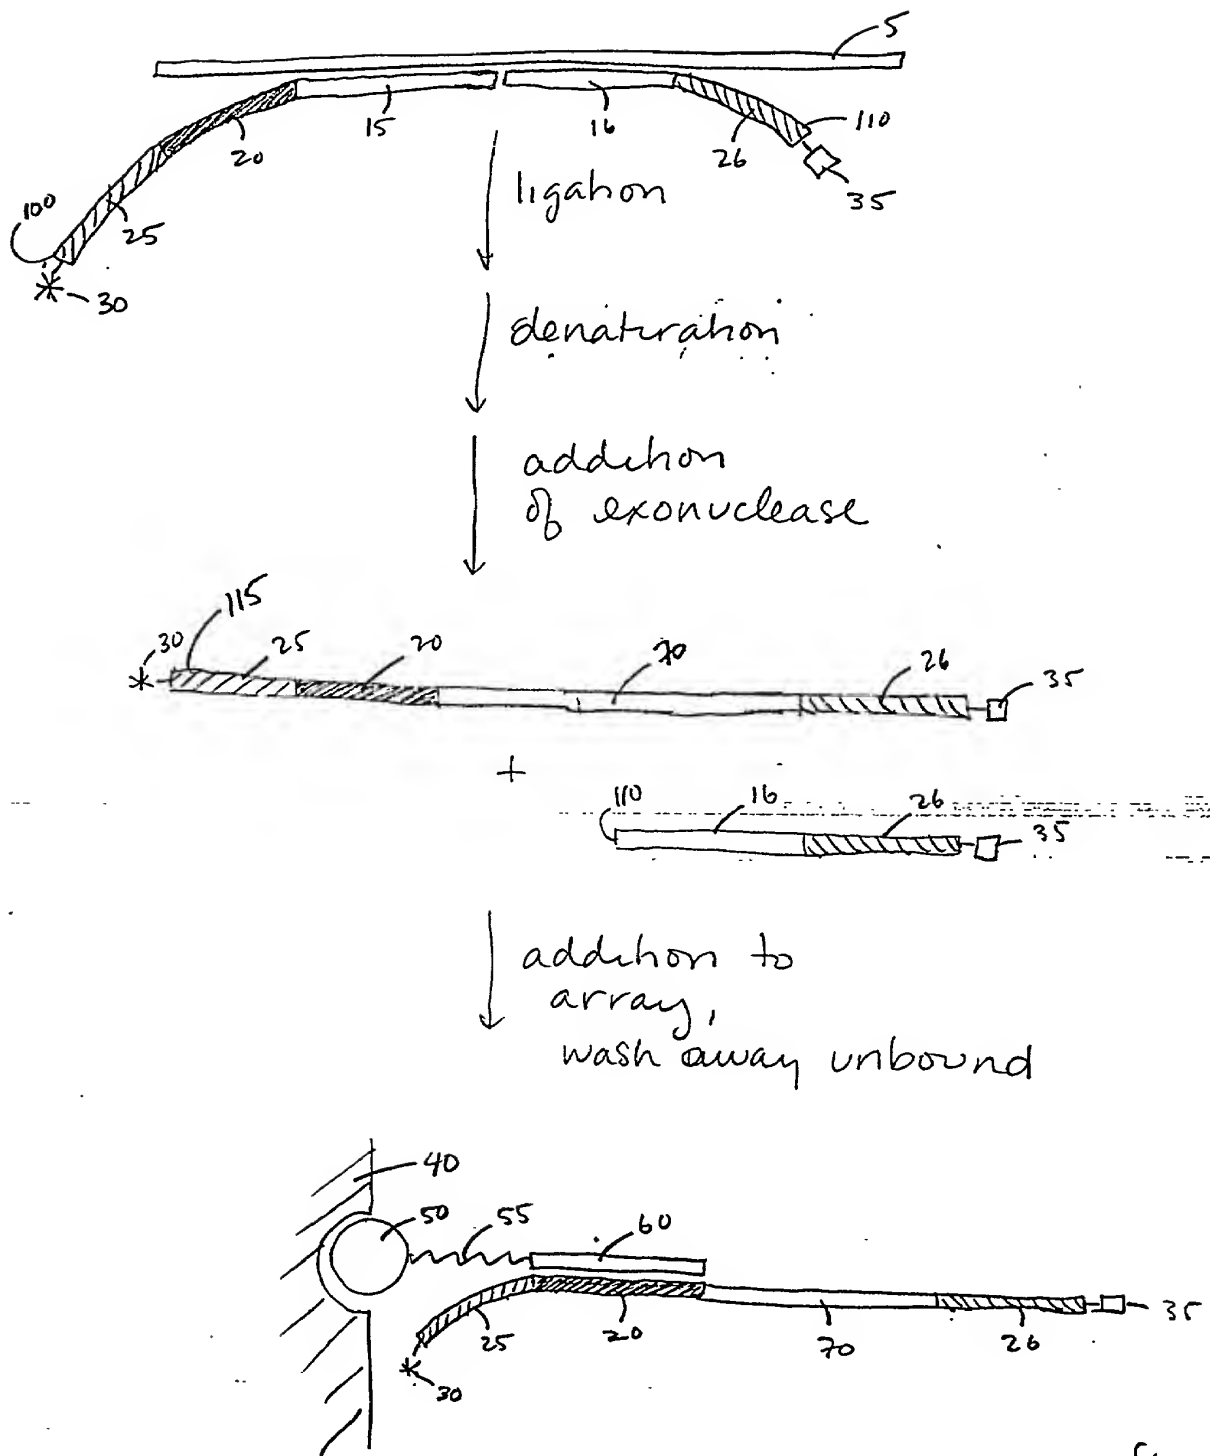 5
15
16
20
26
110
35
100
25
30
ligation
denaturation
addition
of exonuclease
115
30
25
20
70
26
35
+
110
16
26
35
addition to
array,
wash away unbound
40
50
55
60
25
20
70
26
35
30